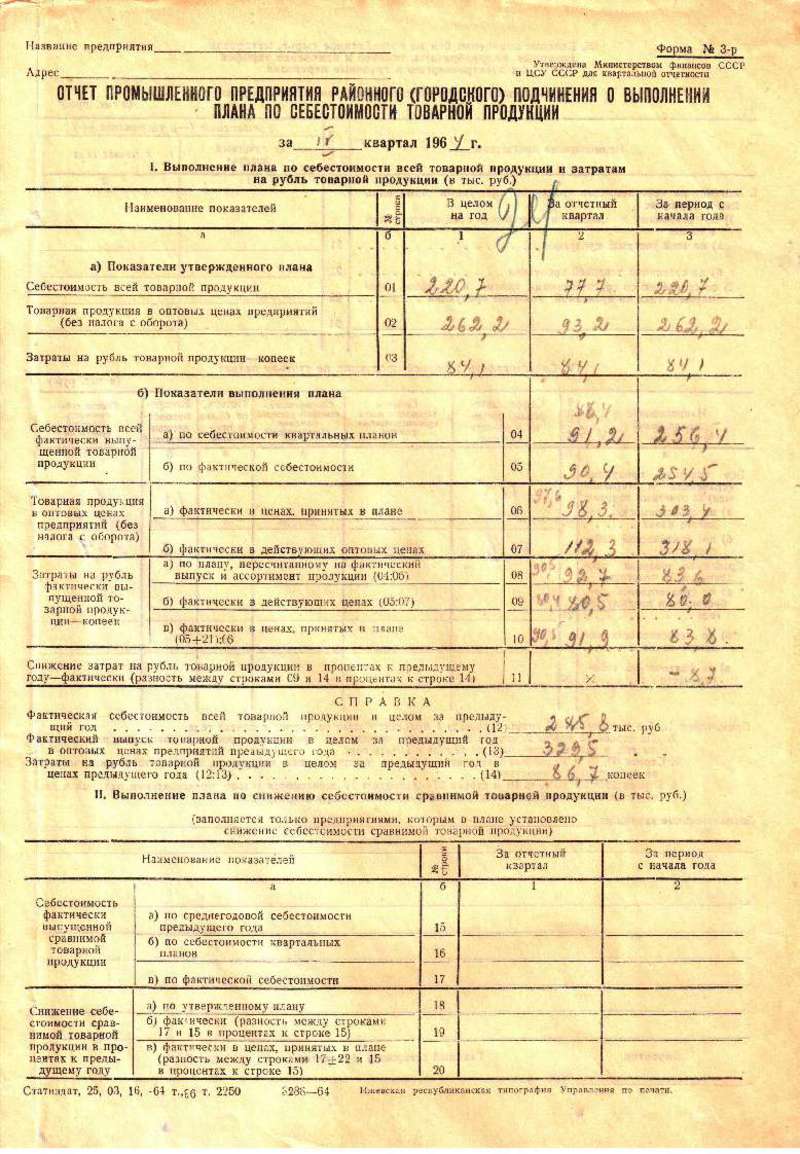 Название предприятия
Форма № 3-р
Адрес
Утверждена Министерством финансов СССР
и ЦСУ СССР для квартальной отчетности
ОТЧЕТ ПРОМЫШЛЕННОГО ПРЕДПРИЯТИЯ РАЙОННОГО (ГОРОДСКОГО) ПОДЧИНЕНИЯ О ВЫПОЛНЕНИИ
ПЛАНА ПО СЕБЕСТОИМОСТИ ТОВАРНОЙ ПРОДУКЦИИ
за IV квартал 1964 г.
I. Выполнение плана по себестоимости всей товарной продукции и затратам
на рубль товарной продукции (в тыс. руб.)
Наименование показателей № строки В целом на год За отчетный квартал За период с начала года
а б 1 2 3
а) Показатели утвержденного плана
Себестоимость всей товарной продукции 01 220,7 77,7 220,7
Товарная продукция в оптовых ценах предприятий
(без налога с оборота) 02 262,2 93,2 262,2
Затраты на рубль товарной продукции—копеек 03 84,1 84,1 84,1
б) Показатели выполнения плана
Себестоимость всей фактически выпущенной товарной продукции
88,4
а) по себестоимости квартальных планов 04 91,2 256,4
б) по фактической себестоимости 05 90,4 254,5
Товарная продукция в оптовых ценах предприятий (без налога с оборота)
а) фактически в ценах, принятых в плане 06 97,6 98,3 303,4
б) фактически в действующих оптовых ценах 07 112,3 318,1
Затраты на рубль фактически выпущенной товарной продукции—копеек
а) по плану, пересчитанному на фактический
выпуск и ассортимент продукции (04:06) 08 90,5 92,7 83,6
б) фактически в действующих ценах (05:07) 09 80,4 80,5 80,0
в) фактически в ценах, принятых в плане
(05+21):06 10 90,5 91,9 83,8
Снижение затрат на рубль товарной продукции в процентах к предыдущему
году—фактически (разность между строками 09 и 14 в процентах к строке 14) 11 × -8,7
СПРАВКА
Фактическая себестоимость всей товарной продукции в целом за предыду-
щий год (12) 285,8 тыс. руб
Фактический выпуск товарной продукции в целом за предыдущий год
в оптовых ценах предприятий предыдущего года (13) 329,5
Затраты на рубль товарной продукции в целом за предыдущий год в
ценах предыдущего года (12:13) (14) 86,7 копеек
II. Выполнение плана по снижению себестоимости сравнимой товарной продукции (в тыс. руб.)
(заполняется только предприятиями, которым в плане установлено
снижение себестоимости сравнимой товарной продукции)
Наименование показателей № строки За отчетный квартал За период с начала года
а б 1 2
Себестоимость фактически выпущенной сравнимой товарной продукции
а) по среднегодовой себестоимости
предыдущего года 15
б) по себестоимости квартальных
планов 16
в) по фактической себестоимости 17
Снижение себе-
стоимости срав-
нимой товарной
продукции в про-
центах к преды-
дущему году
а) по утвержденному плану 18
б) фактически (разность между строками
17 и 15 в процентах к строке 15) 19
в) фактически в ценах, принятых в плане
(разность между строками 17±22 и 15
в процентах к строке 15) 20
Статиздат, 25, 03, 16, -64 т., 66 т. 2250 3288—64 Ижевская республиканская типография Управления по печати.